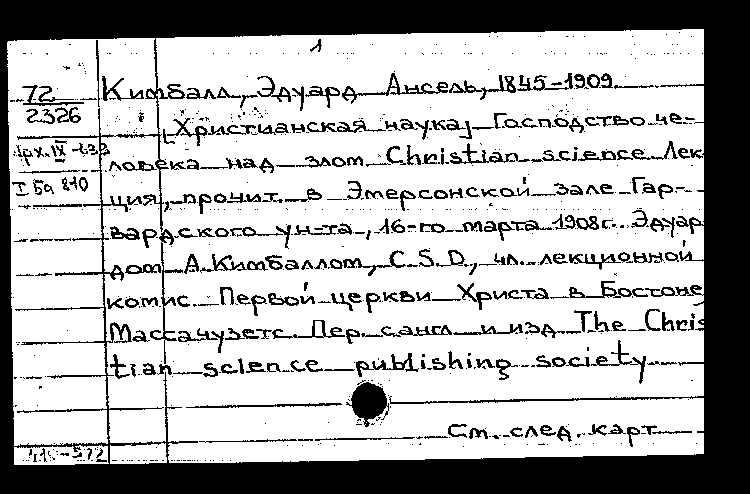 1
72 Кимбалл, Эдуард Ансель, 1845-1909.
2326
[Христианская наука] Господство че-
ловека над злом. Christian science. Лек
I Ба 810
ция, прочит. в Эмерсонской зале Гар-
вардского ун-та, 16-го марта 1908г. Эдуар
дом А. Кимбаллом, C.S.D., чл. лекционной
комис. Первой церкви Христа в Бостоне
Массачузетс. Пер. с англ. и изд. The Chris
tian science publishing society.
См. след. карт